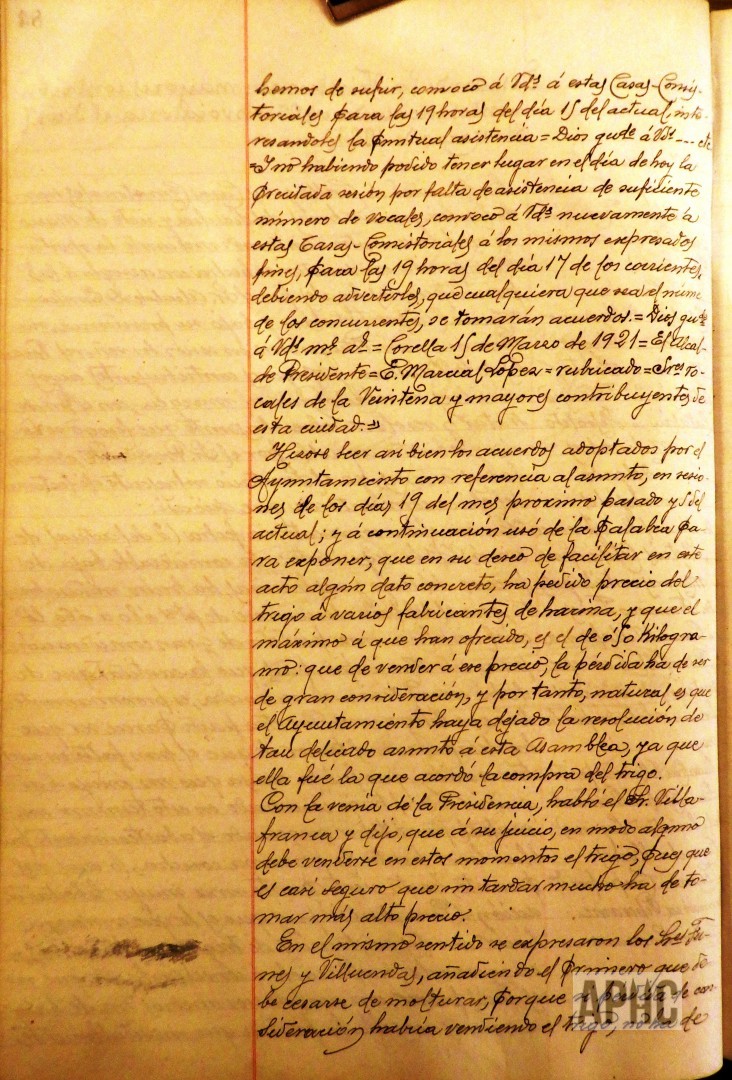 hemos de sufrir, convoco á Vds á estas Casas-Consis-
toriales para las 19 horas del día 15 del actual, inte-
resandoles la puntual asistencia = Dios gude á Vds --- etc
= I no habiendo podido tener lugar en el día de hoy la
precitada sesión por falta de asistencia de suficiente
número de vocales, convoco á Vds nuevamente á
estas Casas-Consistoriales á los mismos expresados
fines, para las 19 horas del día 17 de los corrientes,
debiendo advertirles, que cualquiera que sea el núme
de los concurrentes, se tomarán acuerdos. = Dios gude
á Vds ms as = Corella 15 de Marzo de 1921 = El Alcal-
de Presidente = E. Marcial López = rubricado = Sres vo-
cales de la Veintena y mayores contribuyentes de
esta ciudad. =»
Hizose leer asi bien los acuerdos adoptados por el
Ayuntamiento con referencia al asunto, en sesio-
nes de los días 19 del mes proximo pasado y 5 del
actual; y á continuación usó de la palabra pa-
ra exponer, que en su deseo de facilitar en este
acto algún dato concreto, ha pedido precio del
trigo á varios fabricantes de harina, y que el
máximo á que han ofrecido, es el de 0'50 kilogra-
mo: que de vender á ese precio, la pérdida ha de ser
de gran consideración, y por tanto, natural es que
el Ayuntamiento haya dejado la resolución de
tan delicado asunto á esta Asamblea, ya que
ella fué la que acordó la compra del trigo.
Con la venia de la Presidencia, habló el Sr. Villa-
franca y dijo, que á su juicio, en modo alguno
debe venderse en estos momentos el trigo, pues que
es casi seguro que sin tardar mucho ha de to-
mar más alto precio.
En el mismo sentido se expresaron los Sres Fu-
nes y Villuendas, añadiendo el primero que de-
be cesarse de molturar, porque si perdida de con
sideración habría vendiendo el trigo, no ha de
APHC